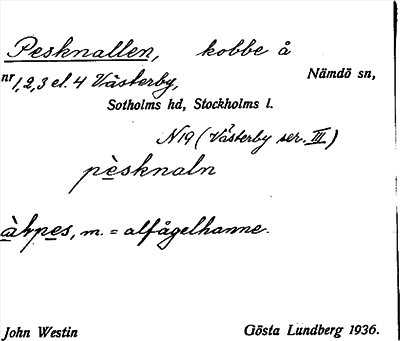 Pesknallen, kobbe å
nr 1, 2, 3 el. 4 Västerby, Nämdö sn,
Sotholms hd, Stockholms l.
N19 (Västerby ser. III)
pèsknaln
àƕpes, m. = alfågelhanne.
John Westin Gösta Lundberg 1936.